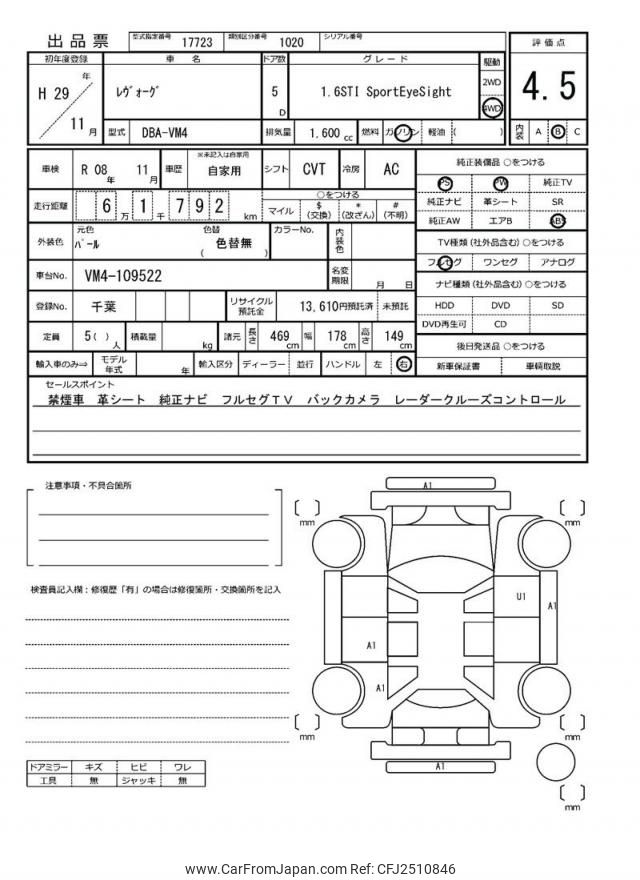 出品票 型式指定番号 17723 類別区分番号 1020 シリアル番号
初年度登録 車 名 ドア数 グレード 駆動 評価点
H 29 年 11 月 ﾚｳﾞｫｰｸﾞ 5 D 1.6STI SportEyeSight 2WD 4WD 4.5
型式 DBA-VM4 排気量 1.600 cc 燃料 ガソリン 軽油 ( ) 内装 A B C
車検 R 08 年 11 月 車歴 ※未記入は自家用 自家用 シフト CVT 冷房 AC
純正装備品 ○をつける
PS PW 純正TV
純正ナビ 革シート SR
純正AW エアB ABS
走行距離 6 万 1 千 7 9 2 km ○をつける
マイル $ (交換) * (改ざん) # (不明)
外装色 元色 ﾊﾟｰﾙ 色替 ( 色替無 ) カラーNo. 内装色
TV種類 (社外品含む) ○をつける
フルセグ ワンセグ アナログ
車台No. VM4-109522 名変期限 月 日
ナビ種類 (社外品含む) ○をつける
HDD DVD SD
DVD再生可 CD
登録No. 千葉 リサイクル預託金 13,610円預託済 未預託
定員 5 ( ) 人 積載量 kg 諸元 長さ 469 cm 幅 178 cm 高さ 149 cm
後日発送品 ○をつける
新車保証書 車輌取説
輸入車のみ⇒ モデル年式 年 輸入区分 ディーラー 並行 ハンドル 左 右
セールスポイント
禁煙車 革シート 純正ナビ フルセグTV バックカメラ レーダークルーズコントロール
注意事項・不具合箇所
検査員記入欄：修復歴「有」の場合は修復箇所・交換箇所を記入
A1
mm mm
U1 A1
A1
A1
mm mm
A1
mm
ドアミラー キズ ヒビ ワレ
工具 無 ジャッキ 無
www.CarFromJapan.com Ref: CFJ2510846